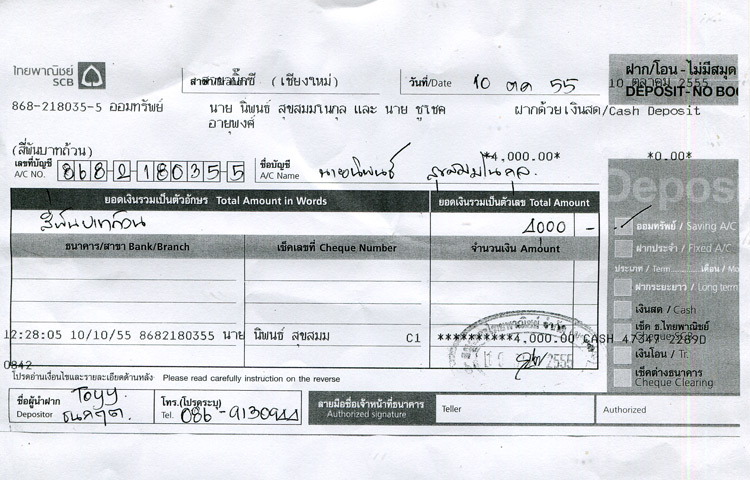 ไทยพาณิชย์
SCB
สาขา (เชียงใหม่)
วันที่/Date 10 ตค 55
ฝาก/โอน - ไม่มีสมุด
10 ตุลาคม 2555
DEPOSIT-NO BOO
868-218035-5 ออมทรัพย์ นาย นิพนธ์ สุขสมมโนกุล และ นาย ชูโชค ฝากด้วย เงินสด/Cash Deposit
อายุพงค์
(สี่พันบาทถ้วน) *4,000.00* *0.00*
เลขที่บัญชี
A/C NO. 868-2-18035-5
ชื่อบัญชี
A/C Name นายนิพนธ์
Deposi
ยอดเงินรวมเป็นตัวอักษร Total Amount in Words ยอดเงินรวมเป็นตัวเลข Total Amount
สี่พันบาทถ้วน 4000 -
ออมทรัพย์ / Saving A/C
ธนาคาร/สาขา Bank/Branch เช็คเลขที่ Cheque Number จำนวนเงิน Amount
ฝากประจำ / Fixed A/C
ประเภท / Term เดือน / Mo
ฝากระยะยาว / Long term
เงินสด / Cash
เช็ค ธ.ไทยพาณิชย์
12:28:05 10/10/55 8682180355 นาย นิพนธ์ สุขสมม C1 **********4,000.00 CASH 47347 2289D
เงินโอน / Tr.
0842
เช็คต่างธนาคาร
Cheque Clearing
โปรดอ่านเงื่อนไขและรายละเอียดด้านหลัง Please read carefully instruction on the reverse
ชื่อผู้นำฝาก
Depositor Toyy
โทร.(โปรดระบุ)
Tel. 086-9130944
ลายมือชื่อเจ้าหน้าที่ธนาคาร
Authorized signature
Teller
Authorized